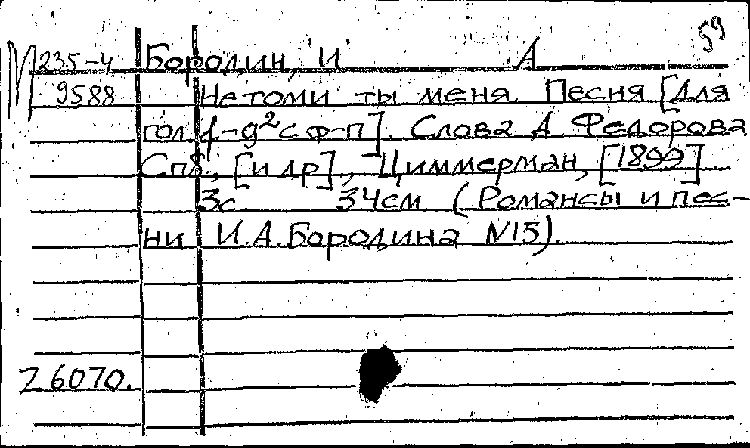 59
М 235-4 Бородин, И А
9588 Не томи ты меня. Песня [Для
гол. f-g²с ф-п]. Слова А Федорова
Спб., [и др], Циммерман, [1899]
3с 34см (Романсы и пес-
ни И. А. Бородина N15).
26070.